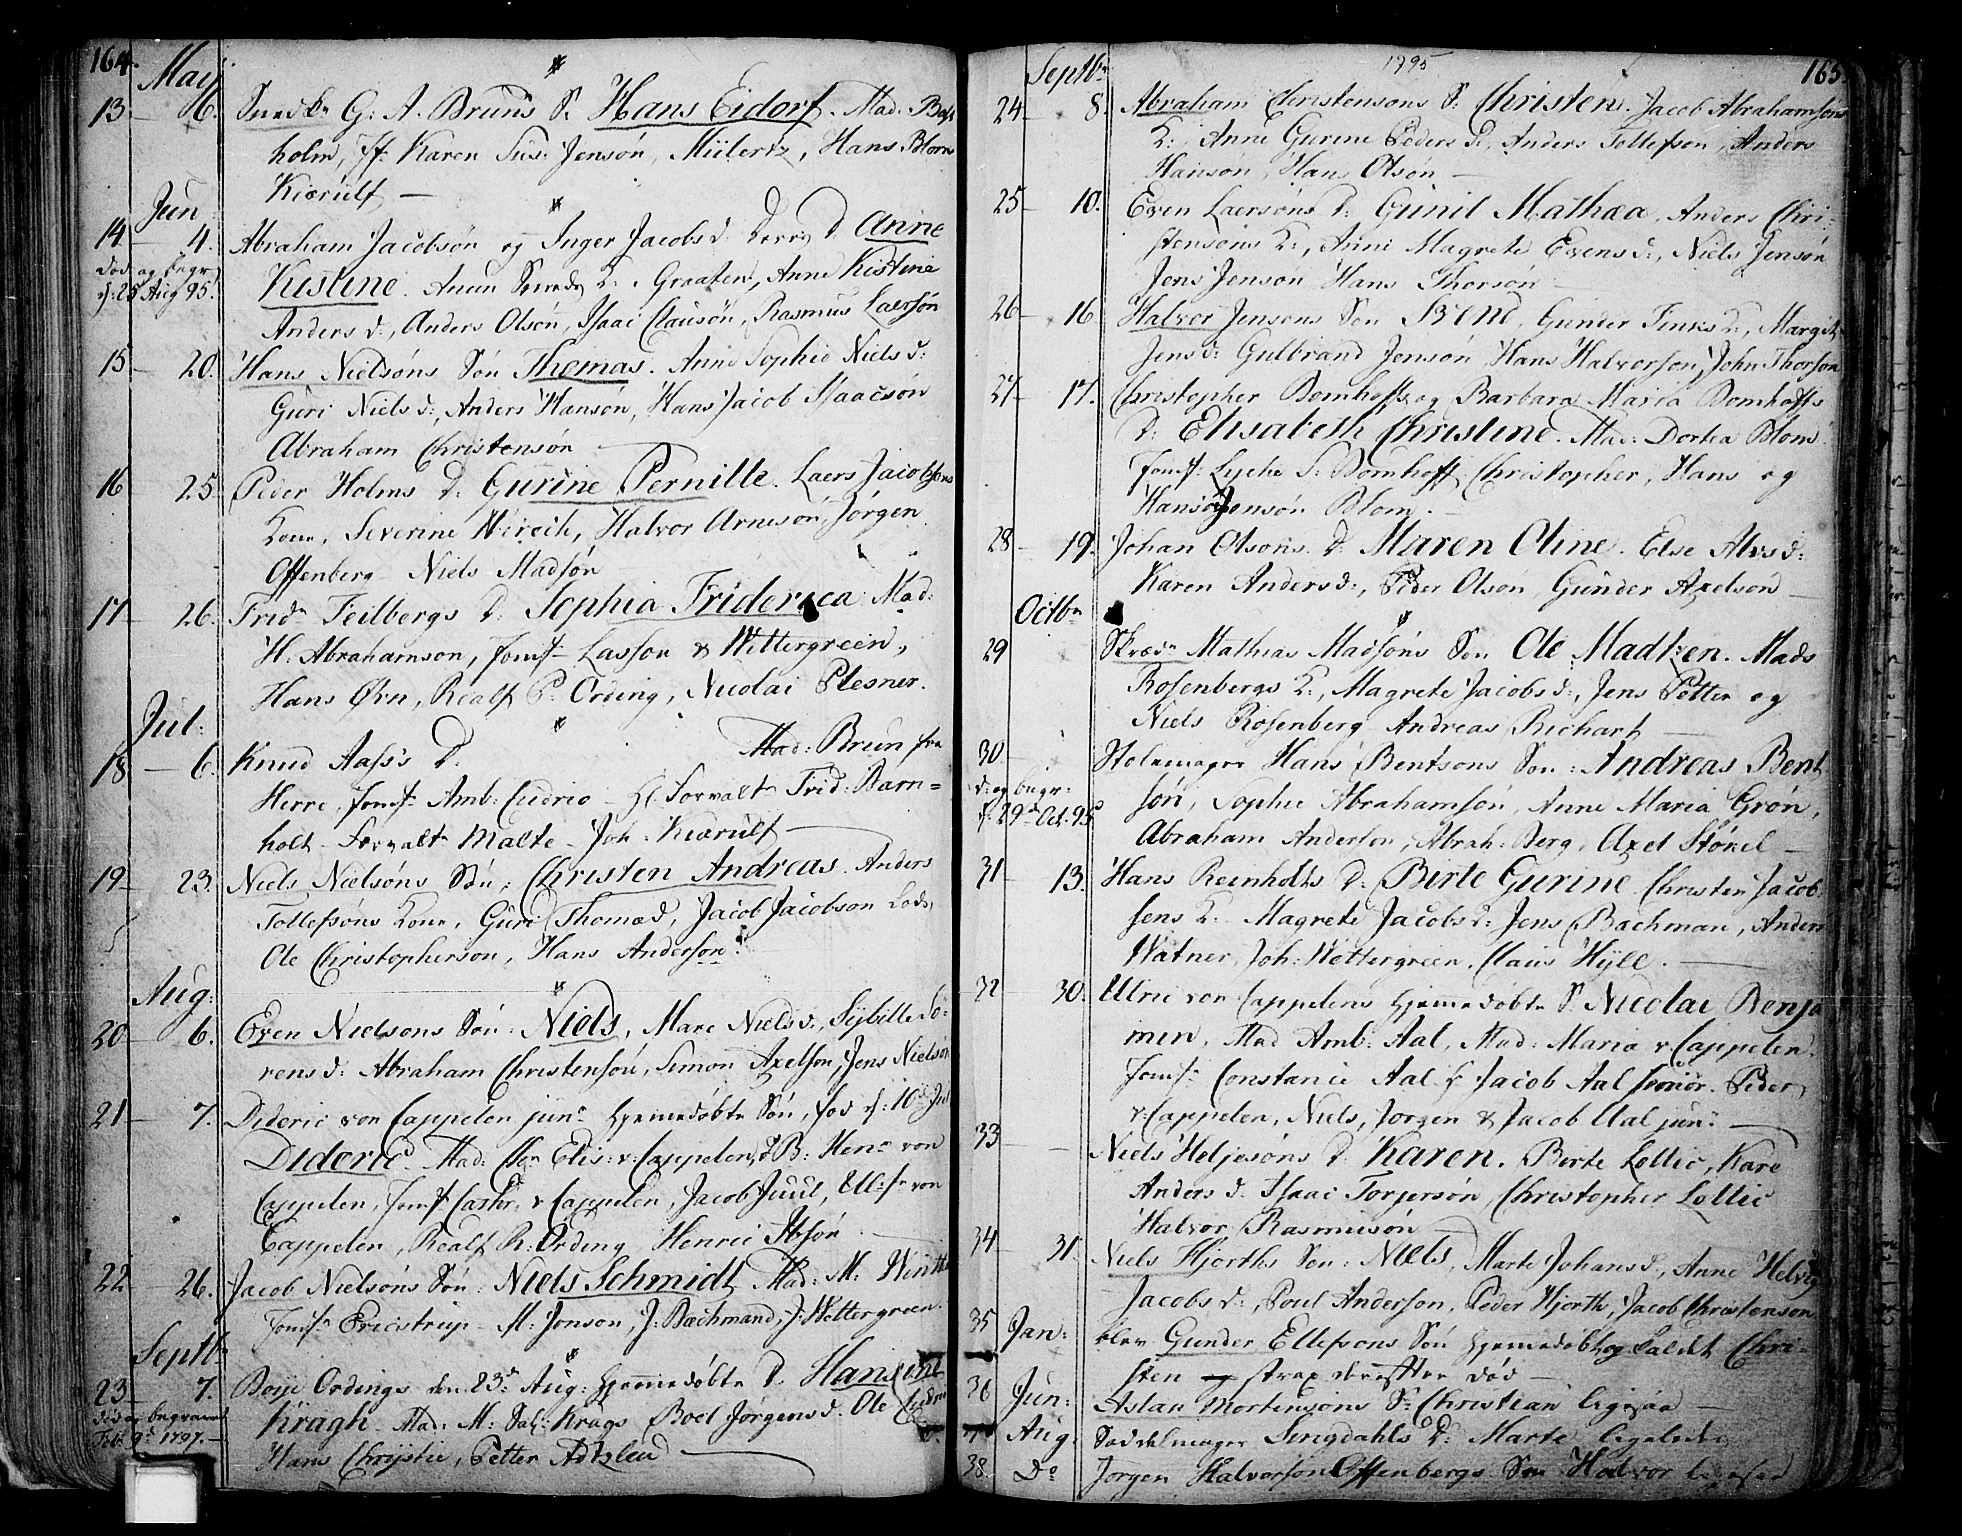 164.
May
13 — 6. Snedkr G. A. Bruuns S. Hans Eidorf. Mad. Boss
holm, Jf. Karen Sus. Jensøn, Mülertz, Hans Blom
Kiærulf —
Jun
14 — 4. Abraham Jacobsøn og Inger Jacobs d. D. Anne
død og begr.
d: 25 Aug 95. Kistine. Graaten, Anne Kistine
Anders d., Anders Olsøn, Isaac Clausøn, Rasmus Laersøn
15 — 20. Hans Nielsøns Søn Thomas. Anne Sophie Niels d:
Guri Niels d:, Anders Hansøn, Hans Jacob Isaacsøn
Abraham Christensøn —
16 25 Peder Holms D: Gurine Pernille. Laers Jacobsøns
Kone, Severine Wirech, Halvor Arnesøn, Jørgen
Offenberg — Niels Madsøn
17 — 26. Fridr Feilbergs D: Sophia Friderica Mad:
H. Abrahamson, Jomf. Lasson & Wettergreen,
Hans Ørn, Realf P. Ording, Nicolai Plesner.
Jul:
18 — 6. Knud Aass's D. Mad: Brun fra
Herre, Jomfr Amb: Cudrio — H. Forvaltr Frid: Barn=
holt — Forvaltr Malte — Joh. Kiærulf —
19 — 23. Niels Nielsøns Søn, Christen Andreas. Anders
Tollefsøns Kone, Guri Thomæd, Jacob Jacobson Lods,
Ole Christopherson, Hans Anderson.
Aug:
20 — 6. Even Nielsons Søn: Niels, Mare Niels d:, Sybille Sø=
rens d: Abraham Christensøn, Simon Axelson, Jens Nielsøn
21 — 7. Dideric von Cappelen junr hjemmedøbte Søn, fød d: 10d Jul
Dideric. Mad: Elis: v: Cappelen, B: Henr von
Cappelen, Jomf v Cappelen, Jacob Juul, von
Cappelen, Realf R: Ording, Henric Ibsøn —
22 — 26. Jacob Nielsøns Søn: Niels Schmidt Mad: M: Winth
Jomfr Ericstrup — M. Jonson, J: Bachmand, J: Wettergreen.
Septbr
23 — 7. Boye Ordings den 23d Aug: hjemmedøbte D. Hansine
død og begravet
Feb: 9d 1797. — Kragh — Mad: M: Sal: Krags Boel Jørgens d: Ole
Hans Chrystie, Petter Adtzlew —
1795
165
Septbr
24 — 8. Abraham Christensøns S: Christen. Jacob Abrahamsøns
K:, Anne Gurine Peders D., Anders Tollefson, Anders
Hansøn, Hans Olsøn —
25 — 10. Even Laersøns D: Gunil Mathæa, Anders Chri=
stensøns K:, Anne Magrete Evens d:, Niels Jensøn
Jens Jenson Hans Thorsøn —
26 — 16 Halvor Jensons Søn Svend, Gunder Finks K:, Margit
Jens d: Gulbrand Jensøn, Hans Halvorson, John Thorson
27 — 17. Christopher Bomhoffs og Barbara Maria Bomhoffs
D: Elisabeth Christine. Mad: Dortea Blom
Jomf: Lyche S: Bomhoff, Christopher, Hans og
Hans Jensøn Blom. —
28 — 19. Johan Olsøns D: Maren Oline. Else Alvs d:
Karen Anders d:, Peder Olsøn, Gunder Axelsøn —
Octbr
29 Skrædr Mathias Madsøns Søn Ole Madtzen. Mads
Rosenbergs K:, Magrete Jacobs d:, Jens Petter og
Niels Rosenberg Andreas Richart —
30 — Stolemager Hans Bentsøns Søn: Andreas Bent
d: og begr:
d. 29d Oct. 95 søn, Sophie Abrahamsøn, Anne Maria Grøn,
Abraham Anderson, Abrah: Berg, Axel Stønel —
31 — 13. Hans Reinholts D: Birte Gurine Christen Jacob
sens K. Magrete Jacobs d: Jens Bachman, Anders
Watner, Joh: Wettergreen, Claus Hyll. —
32 — 30. Ulric von Cappelens hjemmedøbte S: Nicolai Benja
min, Mad Amb: Aal, Mad: Maria v: Cappelen.
Jomfr Constance Aal H Jacob Aal senior. Peder
v: Cappelen, Niels, Jørgen & Jacob Aal junr —
33 — Niels Heljesøns D. Karen. Birte Lottic, Kare
Anders d. Isaac Torjersøn, Christopher Lottic
Halvor Rasmusøn —
34 — 31. Niels Hjorths Søn: Niels, Marte Johans d:, Anne Helvig
Jacobs d:, Poul Anderson, Peder Hjorth, Jacob Christenson
35 Jan: blev Gunder Ellefsons Søn hjemmedøbt og kaldet Chri=
sten — strax derefter død —
36 Jun: Aslac Mortensøns S: Christian ligesaa —
37 Aug: Saddelmager Lingdahls D: Marte ligeledes
38. Do Jørgen Halvorson Offenbergs Søn Halvor ligesaa